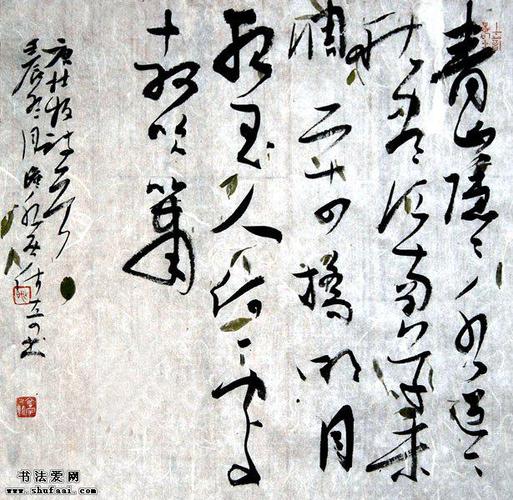 青山隱々水迢々
秋尽江南草未
凋二十四橋明月
夜玉人何处
教吹箫
唐杜牧诗一首
壬辰冬月
书
书法爱网
www.shufaai.com